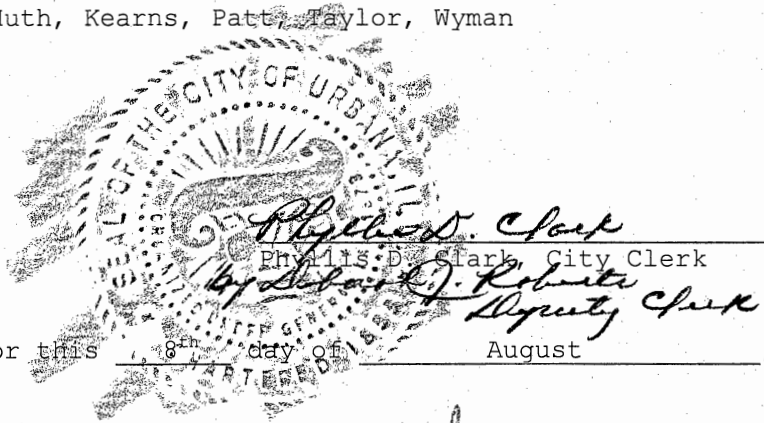 Huth, Kearns, Patt, Taylor, Wyman
SEAL OF THE CITY OF URBANA, IL
Phyllis D. Clark
Phyllis D. Clark, City Clerk
by Deborah J. Roberts
Deputy Clerk
or this 8th day of August
CHARTERED 185